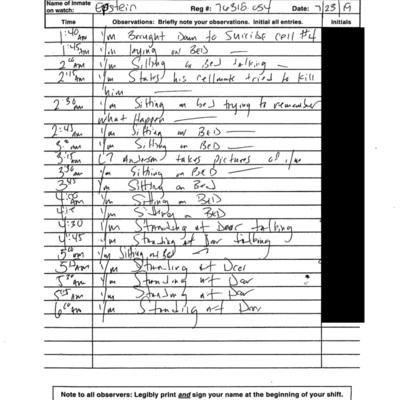 Name of Inmate on watch: Epstein Reg #: 76318-054 Date: 7/23/19
Time Observations: Briefly note your observations. Initial all entries. Initials
1:40 Am I/m Brought Down to Suicide cell #4
1:45 Am I/m laying on BED
2:00 Am I/m Sitting on Bed talking
2:15 Am I/m States his cellmate tried to kill
him
2:30 Am I/m Sitting on bed trying to remember
what happen
2:45 Am I/m Sitting on BED
Am I/m Sitting on BED
3:15 Am takes pictures of I/m
Am I/m Sitting on BED
3:45 I/m Sitting on Bed
Am I/m Sitting on BED
I/m on BED
4:30 I/m Standing at Door talking
4:45 I/m Standing at Door talking
5:00 Am I/m Sitting on Bed
Am I/m Standing at Door
Am I/m Standing at Door
Am I/m Standing at Door
6:00 Am I/m Standing at Door
Note to all observers: Legibly print and sign your name at the beginning of your shift.